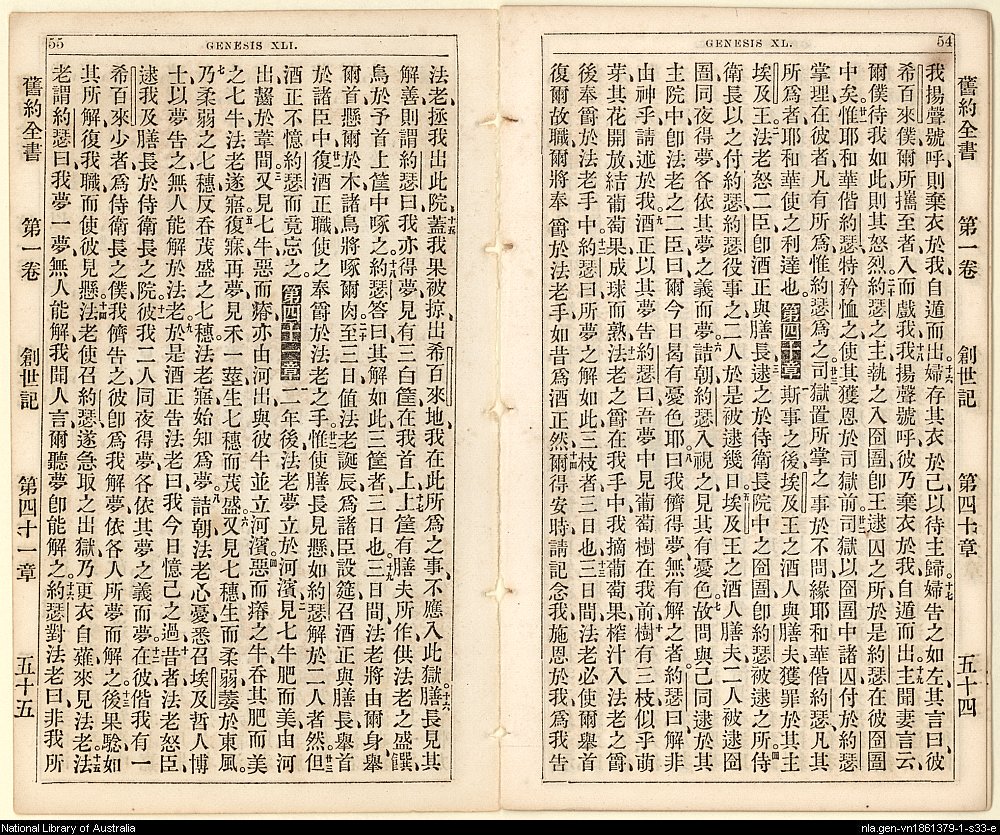 54
GENESIS XL.
舊約全書 第一卷 創世記 第四十章 五十四
我揚聲號呼、則棄衣於我、自遁而出。婦存其衣於己、以待主歸。婦告之如左、其言曰、彼
希百來僕、爾所攜至者、入而戲我。我揚聲號呼、彼乃棄衣於我、自遁而出。主聞妻言云、
爾僕待我如此、則其怒烈。約瑟之主執之、入囹圄、卽王逮囚之所、於是約瑟在彼囹圄
中矣。惟耶和華偕約瑟、特矜恤之、使其獲恩於司獄前。司獄以囹圄中諸囚付於約瑟
掌理、在彼者、凡有所爲、惟約瑟爲之。司獄置所掌之事於不問、緣耶和華偕約瑟、凡其
所爲者、耶和華使之利達也。 第四十章 斯事之後、埃及王之酒人與膳夫獲罪於其主
埃及王。法老怒二臣、卽酒正與膳長、逮之於侍衛長院中之囹圄、卽約瑟被逮之所。侍
衛長以之付約瑟、約瑟役事之、二人於是被逮幾日。埃及王之酒人膳夫二人被逮囹
圄、同夜得夢、各依其夢之義而夢。詰朝約瑟入視之、見其有憂色。故問與己同逮於其
主院中卽法老之二臣曰、爾今日曷有憂色耶。曰、我儕得夢、無有解之者。約瑟曰、解非
由神乎、請述於我。酒正以其夢告約瑟曰、吾夢中見葡萄樹在我前、樹有三枝、似乎萌
芽、其花開放、結葡萄果成球而熟。法老之爵在我手中、我摘葡萄果榨汁入法老之爵、
後奉爵於法老手中。約瑟曰、所夢之解如此、三枝者、三日也。三日間法老必使爾舉首
復爾故職、爾將奉爵於法老手、如昔爲酒正然。爾得安時、請記念我、施恩於我、爲我告
55
GENESIS XLI.
法老、拯我出此院。蓋我果被掠出希百來地、我在此所爲之事、不應入此獄。膳長見其
解善、則謂約瑟曰、我亦得夢、見有三白筐在我首上、上筐有膳夫所作供法老之盛饌、
鳥於予首上筐中啄之。約瑟答曰、其解如此、三筐者、三日也。三日間法老將由爾身舉
爾首、懸爾於木、諸鳥將啄爾肉。至三日、値法老誕辰、爲諸臣設筵、召酒正與膳長、舉首
於諸臣中、復酒正職、使之奉爵於法老之手、惟使膳長見懸、如約瑟解於二人者然。但
酒正不憶約瑟、而竟忘之。 第四十一章 二年後、法老夢立於河濱、見七牛肥而美、由河
出、齧於葦間。又見七牛惡而瘠、亦由河出、與彼牛並立河濱。惡而瘠之牛吞其肥而美
之七牛。法老遂寤。復寐再夢、見禾一莖生七穗而茂盛。又見七穗生而柔弱、萎於東風。
乃柔弱之七穗反吞茂盛之七穗。法老寤、始知爲夢。詰朝法老心憂、悉召埃及哲人博
士、以夢告之、無人能解於法老。於是酒正告法老曰、我今日憶己之過。昔者法老怒臣
逮我及膳長於侍衛長之院。彼我二人同夜得夢、各依其夢之義而夢。在彼偕我有一
希百來少者、爲侍衛長之僕、我儕告之、彼卽爲我解夢、依各人所夢而解之。後果驗如
其所解、復我職、而使彼見懸。法老使召約瑟、遂急取之出獄、乃更衣自薙、來見法老。法
老謂約瑟曰、我夢一夢、無人能解、我聞人言爾聽夢卽能解之。約瑟對法老曰、非我所
舊約全書 第一卷 創世記 第四十一章 五十五
National Library of Australia
nla.gen-vn1861379-1-s33-e